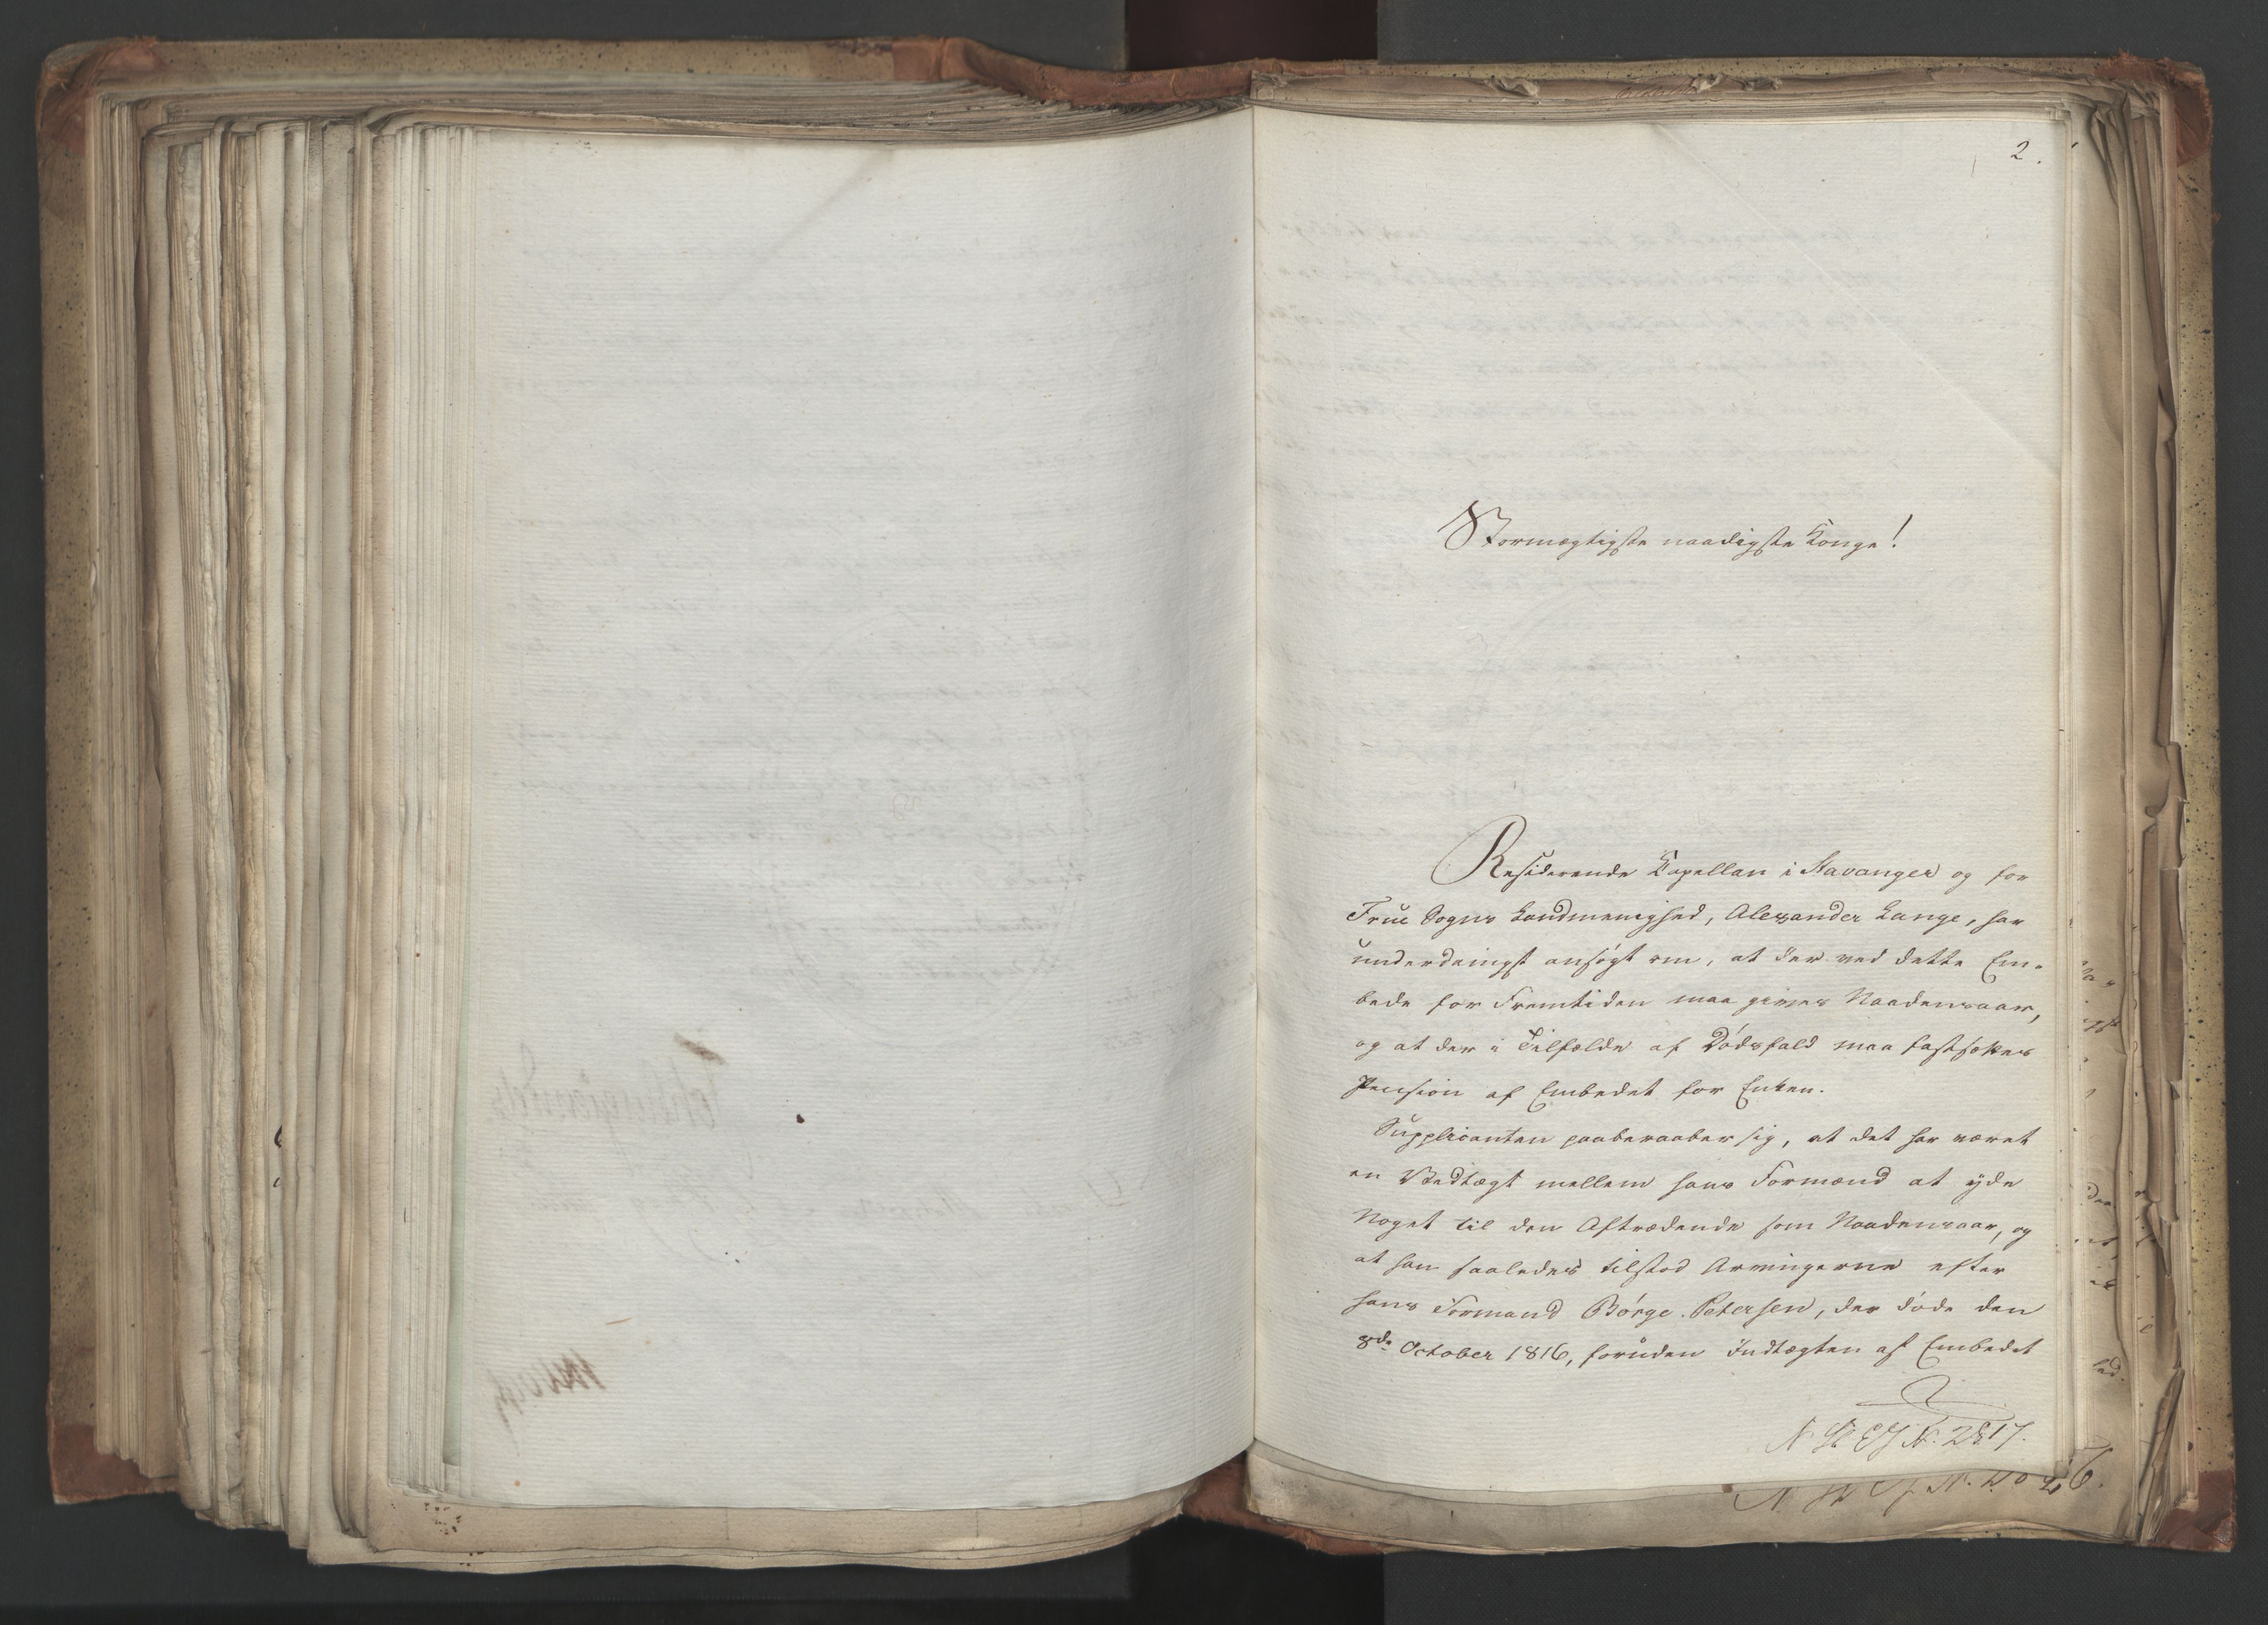 2.
Stormægtigste naadigste Konge!
Residerende Kapellan i Stavanger og for
Frue Sogns Landmenighed, Alexander Lange, har
underdanigst ansøgt om, at der ved dette Em-
bede for Fremtiden maa gives Naadensaar,
og at der i Tilfælde af Dødsfald maa fastsættes
Pension af Embedet for Enken.
Supplicanten paaberaaber sig, at det har været
en Vedtægt mellem hans Formænd at yde
Noget til den Aftrædende som Naadensaar, og
at han saaledes tilstod Arvingerne efter
hans Formand Børge Petersen, der døde den
8de October 1816, foruden Indtægten af Embedet